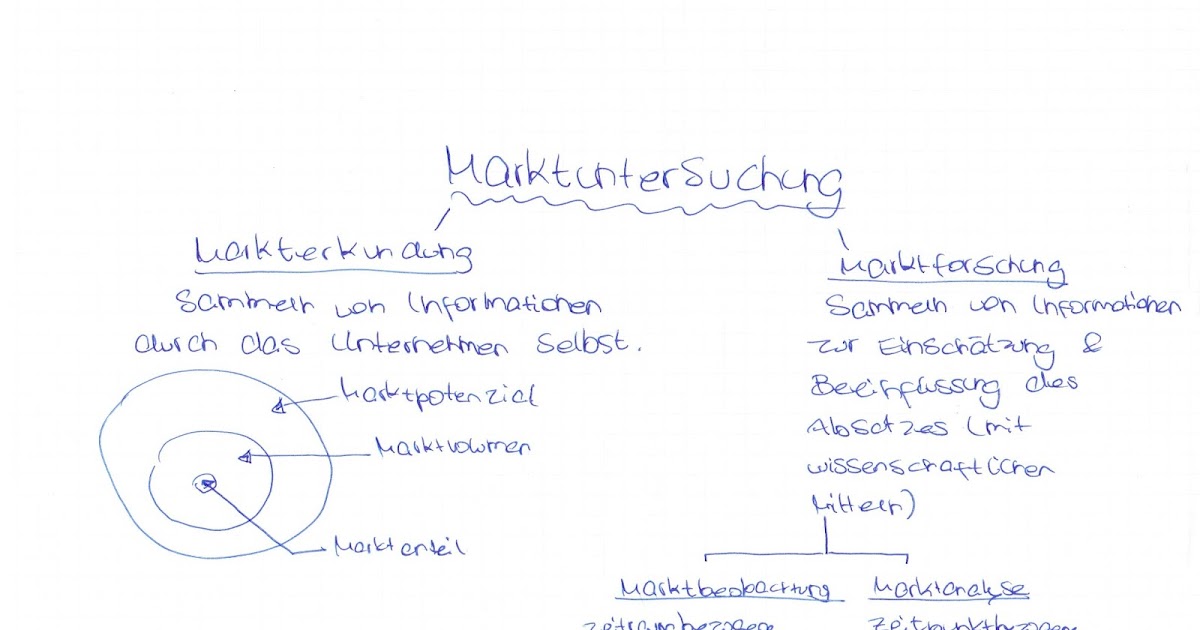 Marktuntersuchung
Markterkundung
Sammeln von Informationen
durch das Unternehmen selbst.
Marktpotenzial
Marktvolumen
Marktanteil
Marktforschung
Sammeln von Informationen
zur Einschätzung &
Beeinflussung des
Absatzes (mit
wissenschaftlichen
Mitteln)
Marktbeobachtung
zeitraumbezogen
Marktanalyse
zeitpunktbezogen